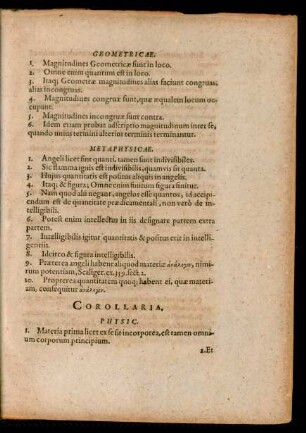 GEOMETRICAE.
1. Magnitudines Geometricæ sunt in loco.
2. Omne enim quantum est in loco.
3. Itaq; Geometræ magnitudines alias faciunt congruas,
alias incongruas.
4. Magnitudines congruæ sunt, quæ æqualem locum oc-
cupant.
5. Magnitudines incongruæ sunt contra.
6. Idem etiam probat adscriptio magnitudinum inter se,
quando unius termini alterius terminis terminantur.
METAPHYSICAE.
1. Angeli licet sint quanti, tamen sunt indivisibiles.
2. Sic flamma ignis est indivisibilis, quamvis sit quanta.
3. Hujus quantitatis est positus aliquis in angelis.
4. Itaq; & figura; Omne enim finitum figura finitur.
5. Nam quod alii negant, angelos esse quantos, id accipi-
endum est de quantitate prædicamentali, non verò de in-
telligibili.
6. Potest enim intellectus in iis designare partem extra
partem.
7. Intelligibilis igitur quantitatis & positus erit in intelli-
gentiis.
8. Idcirco & figura intelligibilis.
9. Præterea angeli habent aliquid materiæ ἀνάλογον, nimi-
rum potentiam, Scaliger. ex. 359. sect. 2.
10. Propterea quantitatem quoq; habent ei, quæ materi-
am, consequitur ἀνάλογον.
COROLLARIA.
PHYSIC.
1. Materia prima licet ex se sit incorporea, est tamen omni-
um corporum principium.
2. Et